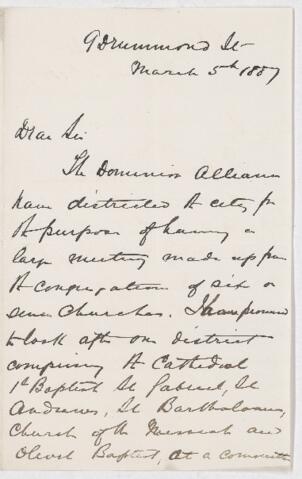 9 Drummond St
March 5th 1887
Dear Sir
The Dominion Alliance
have districted the city for
the purpose of having a
large meeting made up from
the congregations of six or
seven Churches. I have promised
to look after one district
comprising the Cathedral
1st Baptist St Gabriel, St
Andrews, St Bartholomew,
Church of the Messiah and
Olivet Baptist, at a committee